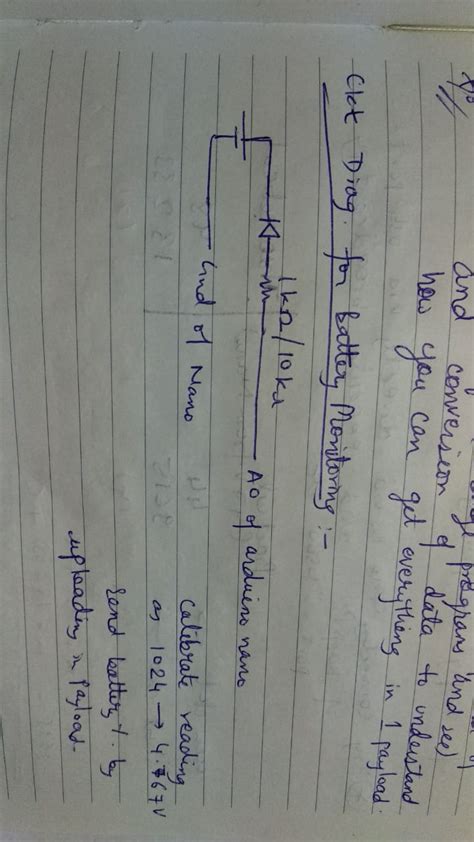 program and see)
and conversion of data to understand
how you can get everything in 1 payload.
Ckt Diag. for Battery Monitoring :-
1kΩ/10kΩ
A0 of arduino nano
Gnd of Nano
Calibrate reading
as 1024 → 4.767V
Send battery %. by
uploading in Payload.